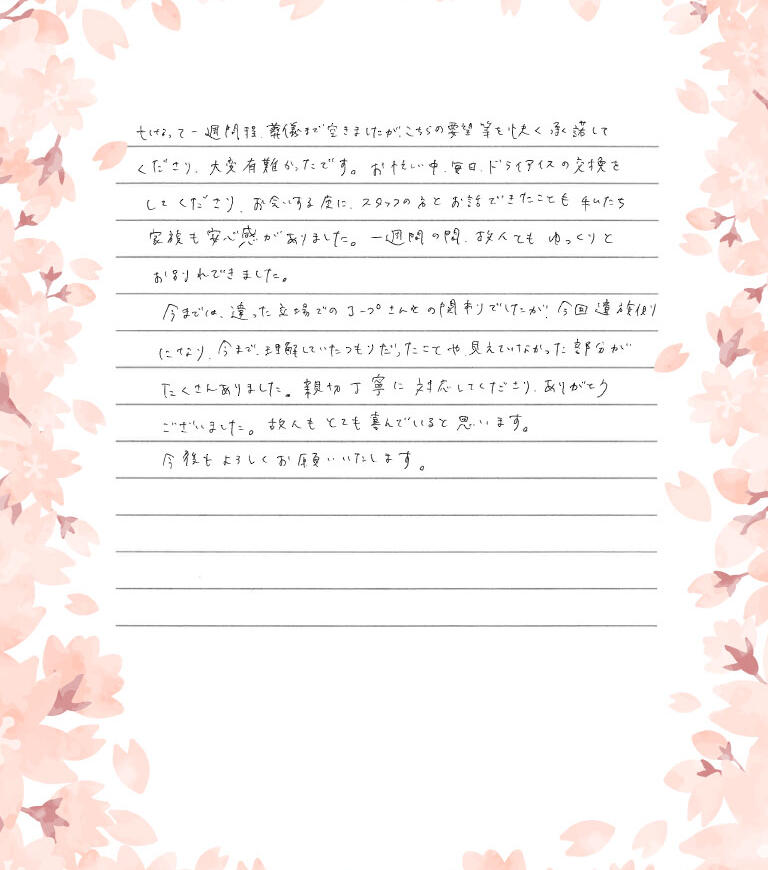 亡くなって一週間程、葬儀まで空きましたが、こちらの要望等を快く承諾して
くださり、大変有難かったです。お忙しい中、毎日、ドライアイスの交換を
してくださり、お会いする度に、スタッフの方とお話できたことも私たち
家族も安心感がありました。一週間の間、故人ともゆっくりと
お別れできました。
今までは、違った立場でのコープさんとの関わりでしたが、今回遺族側
になり、今まで、理解していたつもりだったことや、見えていなかった部分が
たくさんありました。親切丁寧に対応してくださり、ありがとう
ございました。故人もとても喜んでいると思います。
今後もよろしくお願いいたします。